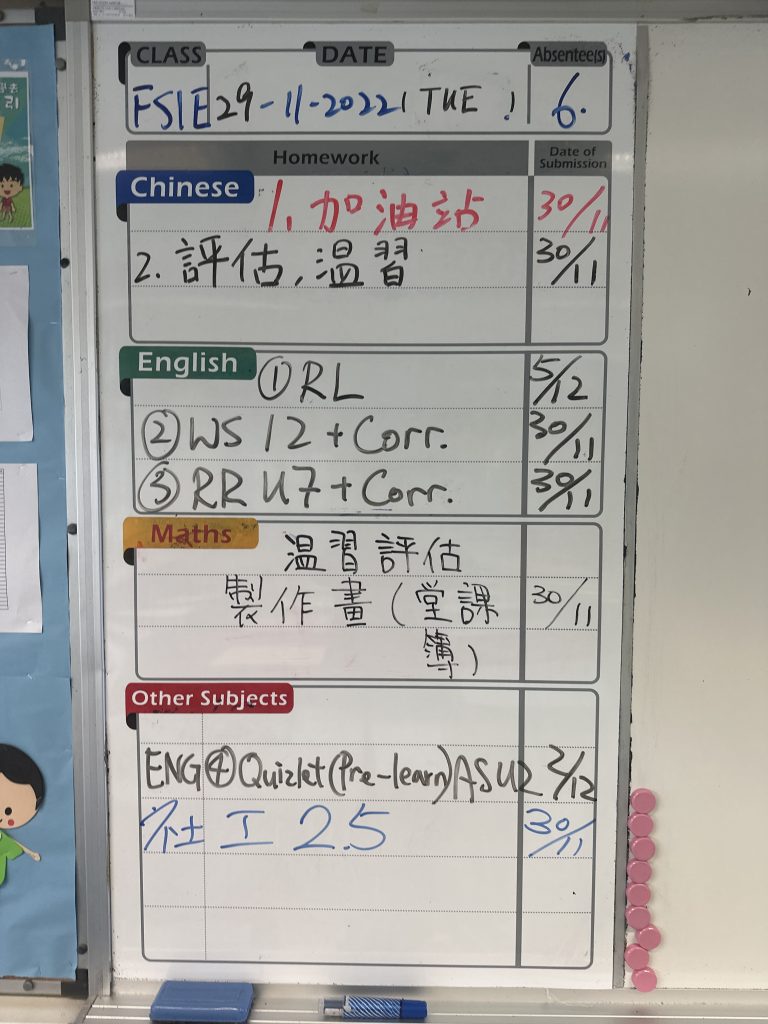 CLASS DATE Absentee(s)
FSIE 29-11-2022 (TUE) 6.
Homework Date of Submission
Chinese
1. 加油站 30/11
2. 評估, 溫習 30/11
English
① RL 5/12
② WS 12 + Corr. 30/11
③ RR U7 + Corr. 30/11
Maths
溫習評估
製作畫(堂課 30/11
簿)
Other Subjects
ENG ④ Quizlet (Pre-learn) ASU2 2/12
社工 2.5 30/11